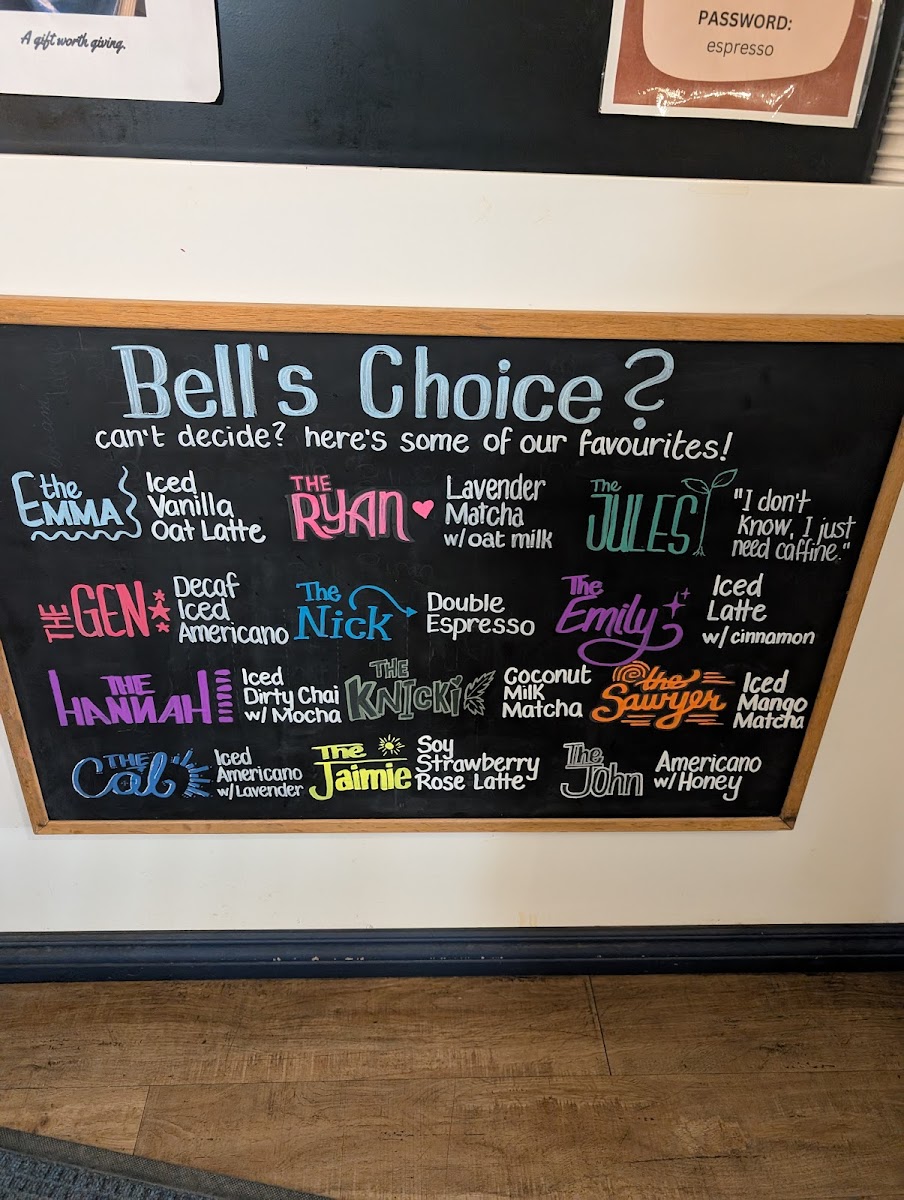 A gift worth giving.
PASSWORD:
espresso
Bell's Choice?
can't decide? here's some of our favourites!
the
EMMA
Iced
Vanilla
Oat Latte
THE
RYAN
Lavender
Matcha
w/oat milk
The
JULES
"I don't
know, I just
need caffine."
THE GEN
Decaf
Iced
Americano
The
Nick
Double
Espresso
The
Emily
Iced
Latte
w/cinnamon
THE
HANNAH
Iced
Dirty Chai
w/Mocha
THE
KNICKi
Coconut
Milk
Matcha
the
Sawyer
Iced
Mango
Matcha
THE
Cal
Iced
Americano
w/Lavender
The
Jaimie
Soy
Strawberry
Rose Latte
The
John
Americano
w/Honey